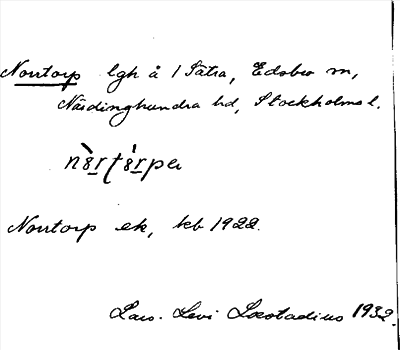 Norrtorp lgh å 1 Sätra, Edsbro sn,
Närdinghundra hd, Stockholms l.
Norrtorp ek, kb 1922.
Lars. Levi Læstadius 1932.